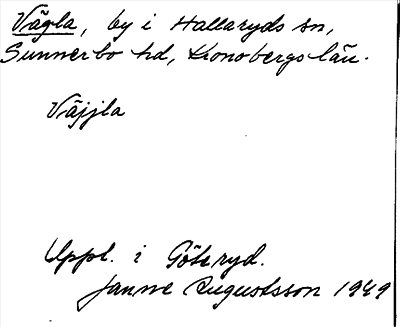 Vägla, by i Hallaryds sn,
Sunnerbo hd, Kronobergs län.
Väjjla
Uppl. i Göteryd.
Janne Augustsson 1949